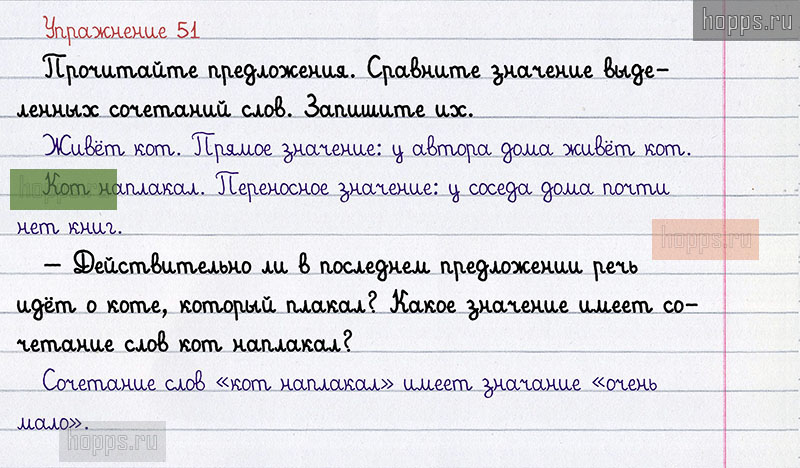 hopps.ru
Упражнение 51
Прочитайте предложения. Сравните значение выде-
ленных сочетаний слов. Запишите их.
Живёт кот. Прямое значение: у автора дома живёт кот.
Кот наплакал. Переносное значение: у соседа дома почти
hopps.ru
нет книг.
hopps.ru
– Действительно ли в последнем предложении речь
идёт о коте, который плакал? Какое значение имеет со-
четание слов кот наплакал?
Сочетание слов «кот наплакал» имеет значание «очень
мало».
hopps.ru